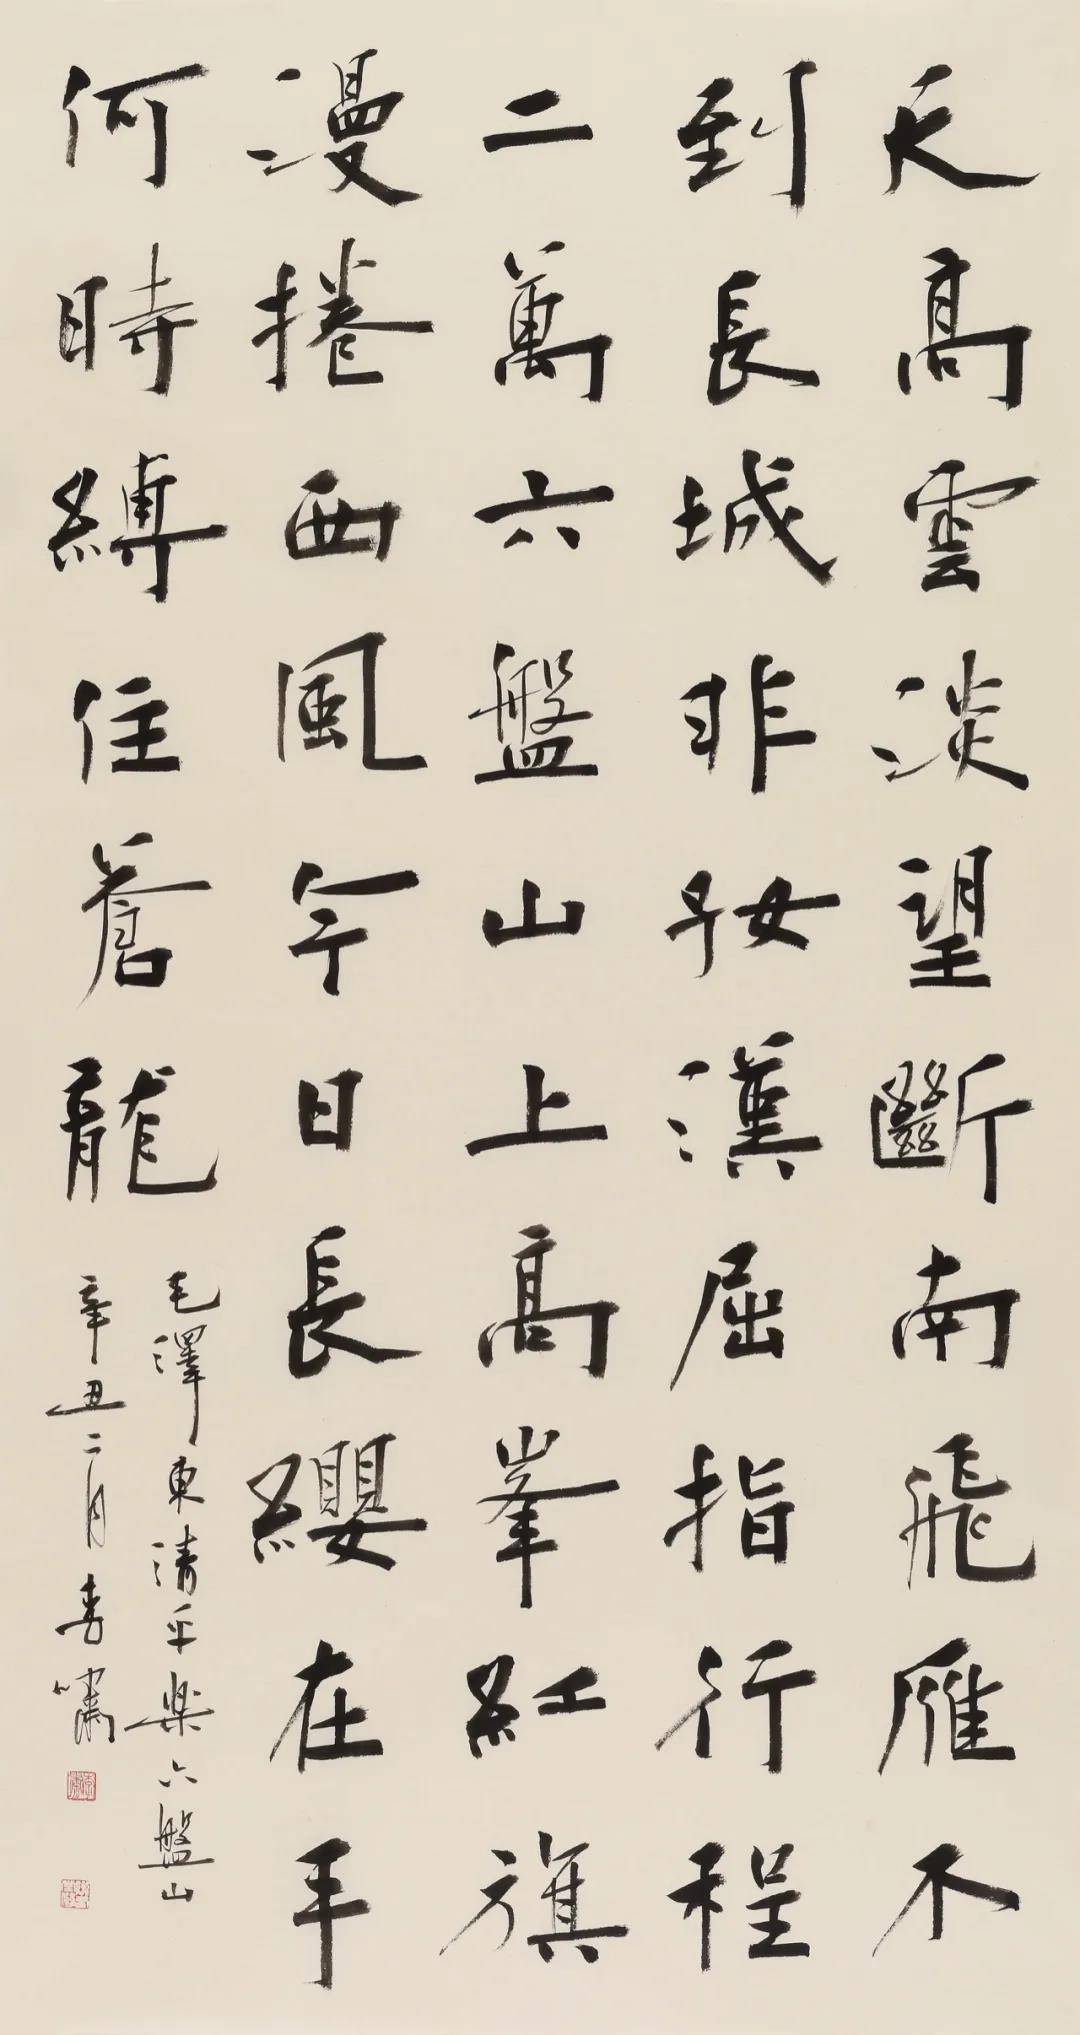 天高雲淡望斷南飛雁不
到長城非好漢屈指行程
二萬六盤山上高峯紅旗
漫捲西風今日長纓在手
何時縛住蒼龍
毛澤東清平樂六盤山
辛丑二月嘯